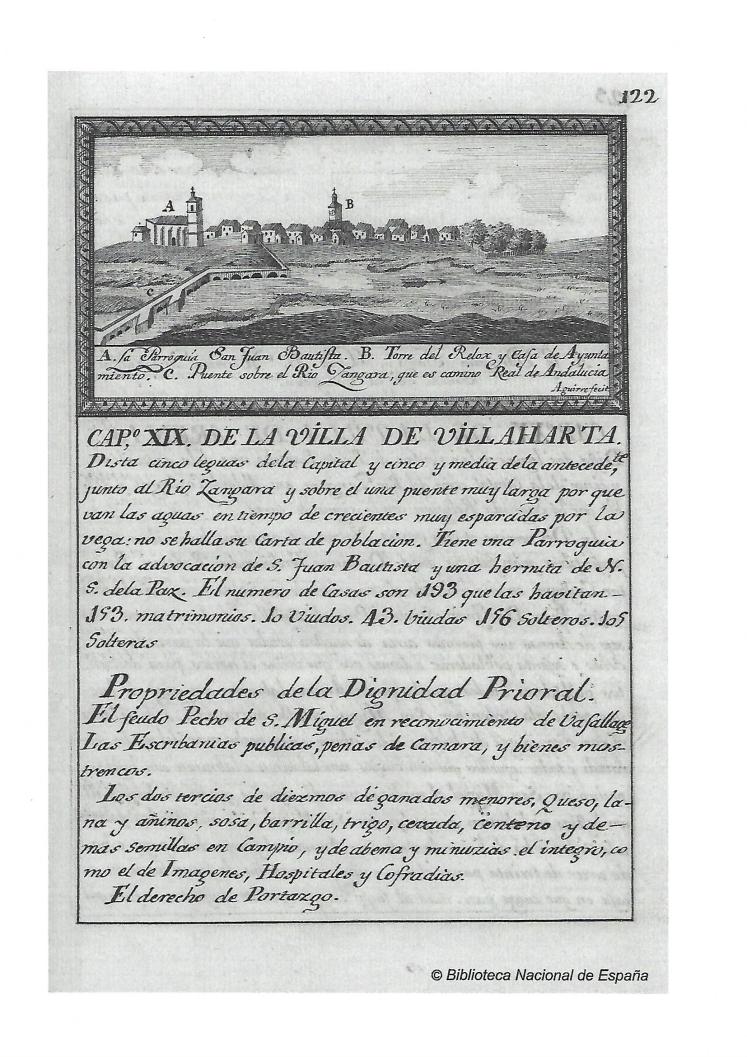 122
A
B
C
A. la Parroquia San Juan Bautista. B. Torre del Relox y Casa de Ayunta
miento. C. Puente sobre el Rio Zangara, que es camino Real de Andalucia
Aguirre fecit
CAP.º XIX. DE LA VILLA DE VILLAHARTA.
Dista cinco leguas dela Capital y cinco y media dela antecede,te
junto al Rio Zangara y sobre el una puente muy larga por que
van las aguas en tiempo de crecientes muy esparcidas por la
vega: no se halla su Carta de poblacion. Tiene vna Parroquia
con la advocacion de S. Juan Bautista y una hermita de N.
S. dela Paz. El numero de Casas son 193 que las havitan—
153. matrimonios. 10 Viudos. 43. Viudas 156 Solteros. 105
Solteras
Propriedades dela Dignidad Prioral.
El feudo Pecho de S. Miguel en reconocimiento de Vasallage
Las Escribanias publicas, penas de Camara, y bienes mos-
trencos.
Los dos tercios de diezmos de ganados menores, Queso, la-
na y añinos, sosa, barrilla, trigo, cevada, Centeno y de-
mas Semillas en Campio, y de abena y minuzias el integro, co
mo el de Imagenes, Hospitales y Cofradias.
El derecho de Portazgo.
© Biblioteca Nacional de España